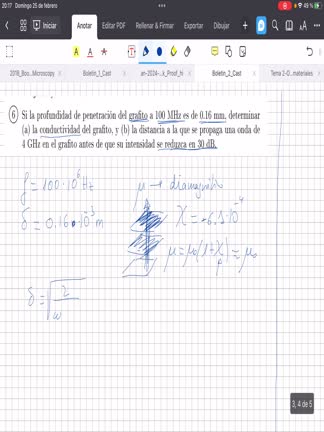 20:17 Domingo 25 de febrero
49 %
Iniciar
Anotar
Editar PDF
Rellenar & Firmar
Exportar
Dibujar
2018_Boo...Microscopy
Boletín_3_Cast
an-2024-...k_Proof_hi
Boletín_2_Cast
Tema 2-O...materiales
6 Si la profundidad de penetración del grafito a 100 MHz es de 0.16 mm, determinar
(a) la conductividad del grafito, y (b) la distancia a la que se propaga una onda de
4 GHz en el grafito antes de que su intensidad se reduzca en 30 dB.
f = 100·10⁶ Hz
μ → diamagnético
δ = 0.16·10⁻³ m
χ = -6.1·10⁻⁴
μ = μ₀(1+χ) ≈ μ₀
δ = √2/ω
3, 4 de 5